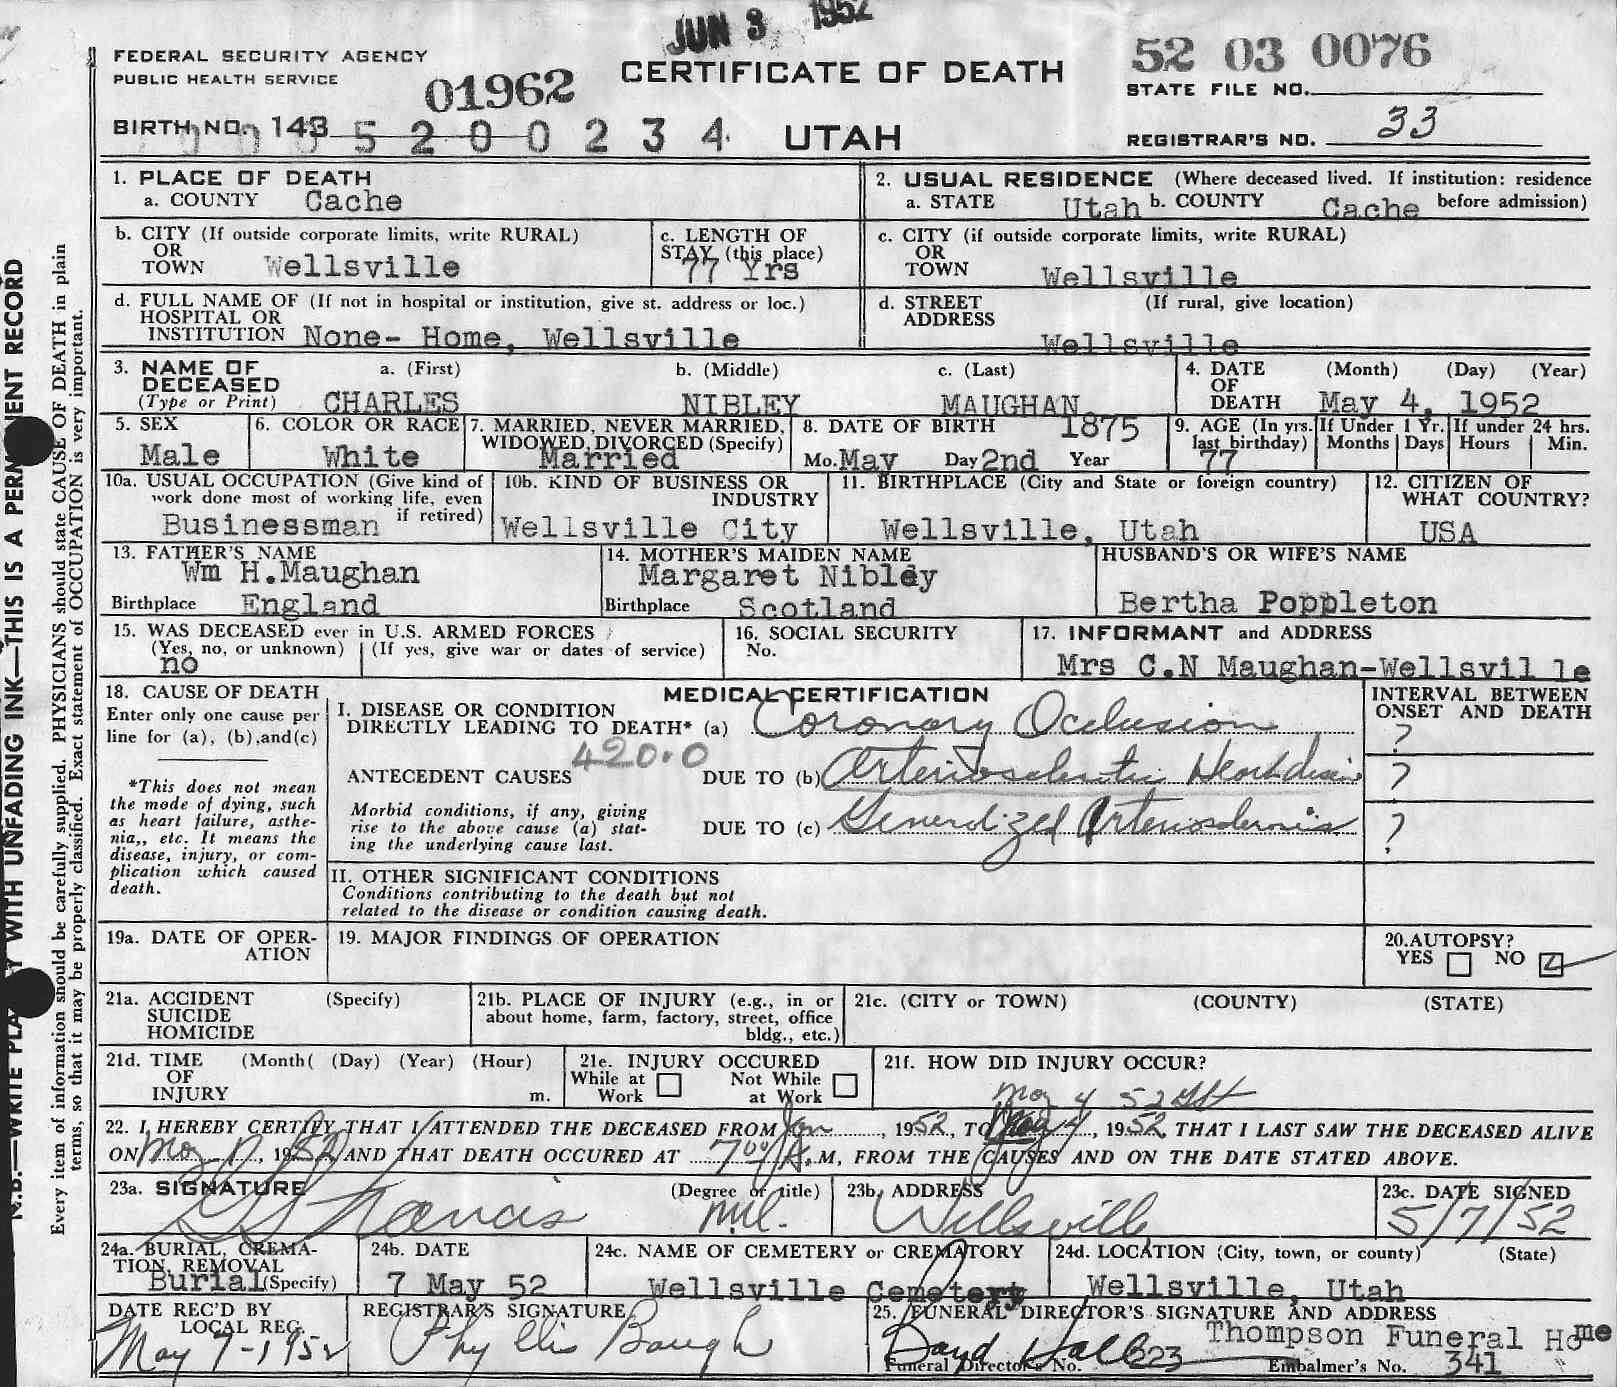 JUN 3 1952
FEDERAL SECURITY AGENCY
PUBLIC HEALTH SERVICE
01962
CERTIFICATE OF DEATH
52 03 0076
STATE FILE NO.
BIRTH NO. 143 5 2 0 0 2 3 4
UTAH
REGISTRAR'S NO. 33
1. PLACE OF DEATH
a. COUNTY Cache
2. USUAL RESIDENCE (Where deceased lived. If institution: residence before admission)
a. STATE Utah b. COUNTY Cache
b. CITY (If outside corporate limits, write RURAL)
OR
TOWN Wellsville
c. LENGTH OF
STAY (this place)
77 Yrs
c. CITY (if outside corporate limits, write RURAL)
OR
TOWN Wellsville
d. FULL NAME OF (If not in hospital or institution, give st. address or loc.)
HOSPITAL OR
INSTITUTION None- Home, Wellsville
d. STREET (If rural, give location)
ADDRESS Wellsville
3. NAME OF DECEASED
(Type or Print)
a. (First) b. (Middle) c. (Last)
CHARLES NIBLEY MAUGHAN
4. DATE OF DEATH (Month) (Day) (Year)
May 4, 1952
5. SEX
Male
6. COLOR OR RACE
White
7. MARRIED, NEVER MARRIED,
WIDOWED, DIVORCED (Specify)
Married
8. DATE OF BIRTH 1875
Mo. May Day 2nd Year
9. AGE (In yrs. last birthday)
77
If Under 1 Yr.
Months Days
If under 24 hrs.
Hours Min.
10a. USUAL OCCUPATION (Give kind of
work done most of working life, even
if retired)
Businessman
10b. KIND OF BUSINESS OR
INDUSTRY
Wellsville City
11. BIRTHPLACE (City and State or foreign country)
Wellsville, Utah
12. CITIZEN OF
WHAT COUNTRY?
USA
13. FATHER'S NAME
Wm H.Maughan
Birthplace England
14. MOTHER'S MAIDEN NAME
Margaret Nibley
Birthplace Scotland
HUSBAND'S OR WIFE'S NAME
Bertha Poppleton
15. WAS DECEASED ever in U.S. ARMED FORCES
(Yes, no, or unknown) (If yes, give war or dates of service)
no
16. SOCIAL SECURITY
No.
17. INFORMANT and ADDRESS
Mrs C.N Maughan-Wellsvil le
18. CAUSE OF DEATH
Enter only one cause per
line for (a), (b),and(c)
*This does not mean
the mode of dying, such
as heart failure, asthe-
nia,, etc. It means the
disease, injury, or com-
plication which caused
death.
MEDICAL CERTIFICATION
I. DISEASE OR CONDITION
DIRECTLY LEADING TO DEATH* (a) Coronary Occlusion
420.0
ANTECEDENT CAUSES DUE TO (b) Arteriosclerotic Heart disease
Morbid conditions, if any, giving
rise to the above cause (a) stat-
ing the underlying cause last.
DUE TO (c) Generalized Arteriosclerosis
INTERVAL BETWEEN
ONSET AND DEATH
?
?
?
II. OTHER SIGNIFICANT CONDITIONS
Conditions contributing to the death but not
related to the disease or condition causing death.
19a. DATE OF OPER-
ATION
19. MAJOR FINDINGS OF OPERATION
20.AUTOPSY?
YES NO
21a. ACCIDENT (Specify)
SUICIDE
HOMICIDE
21b. PLACE OF INJURY (e.g., in or
about home, farm, factory, street, office
bldg., etc.)
21c. (CITY or TOWN) (COUNTY) (STATE)
21d. TIME (Month( (Day) (Year) (Hour)
OF
INJURY m.
21e. INJURY OCCURED
While at Work
Not While at Work
21f. HOW DID INJURY OCCUR?
May 4 52
22. I HEREBY CERTIFY THAT I ATTENDED THE DECEASED FROM Jan, 1952, TO May 4, 1952, THAT I LAST SAW THE DECEASED ALIVE
ON, 1952 AND THAT DEATH OCCURED AT 7:00 A.M, FROM THE CAUSES AND ON THE DATE STATED ABOVE.
23a. SIGNATURE (Degree or title)
Francis M.D.
23b. ADDRESS
Wellsville
23c. DATE SIGNED
5/7/52
24a. BURIAL, CREMA-
TION, REMOVAL
Burial (Specify)
24b. DATE
7 May 52
24c. NAME OF CEMETERY or CREMATORY
Wellsville Cemetery
24d. LOCATION (City, town, or county) (State)
Wellsville, Utah
DATE REC'D BY
LOCAL REG.
May 7-1952
REGISTRAR'S SIGNATURE
Phyllis Baugh
25. FUNERAL DIRECTOR'S SIGNATURE AND ADDRESS
Boyd Hall Thompson Funeral Home
Funeral Director's No. 223 Embalmer's No. 341
WITH UNFADING INK—THIS IS A PERMANENT RECORD
N.B.—WRITE PLAINLY
Every item of information should be carefully supplied. PHYSICIANS should state CAUSE OF DEATH in plain
terms, so that it may be properly classified. Exact statement of OCCUPATION is very important.